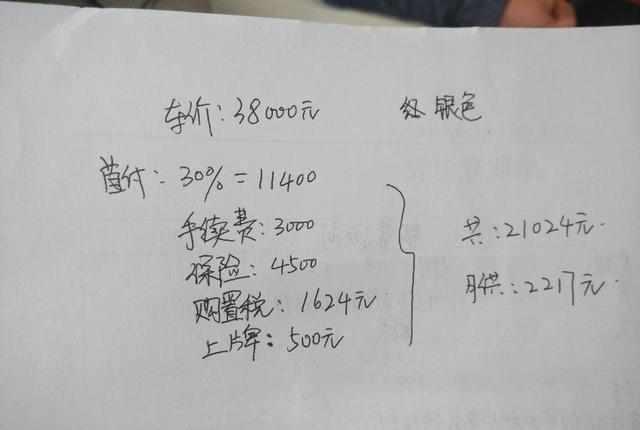 车价：38000元 红 银色
首付：30%=11400
手续费：3000
保险：4500
购置税：1624元
上牌：500元
共：21024元.
月供：2217元.